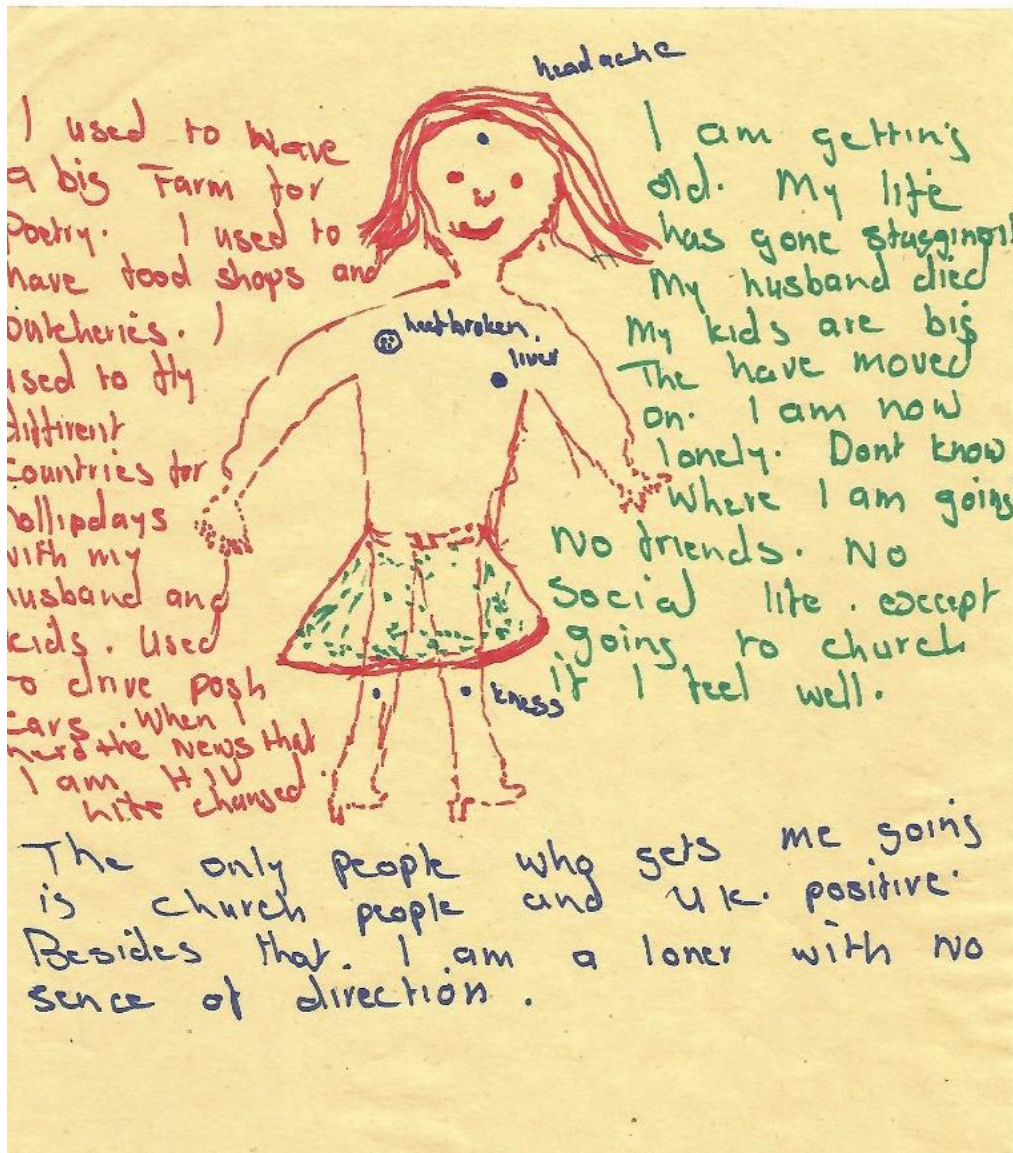 headache
I used to have
a big Farm for
Poetry. I used to
have food shops and
butcheries. I
used to fly
diffirent
countries for
hollipdays
with my
husband and
kids. Used
to drive posh
cars. When I
herd the News that
I am HIV
changed
I am getting
old. My life
has gone
My husband died
My kids are big
The have moved
on. I am now
lonely. Dont know
Where I am going
No friends. No
Social life. except
going to church
if I feel well.
heatbroken,
liver
kness
The only people who gets me going
is church people and UK. positive.
Besides that. I am a loner with No
sence of direction.